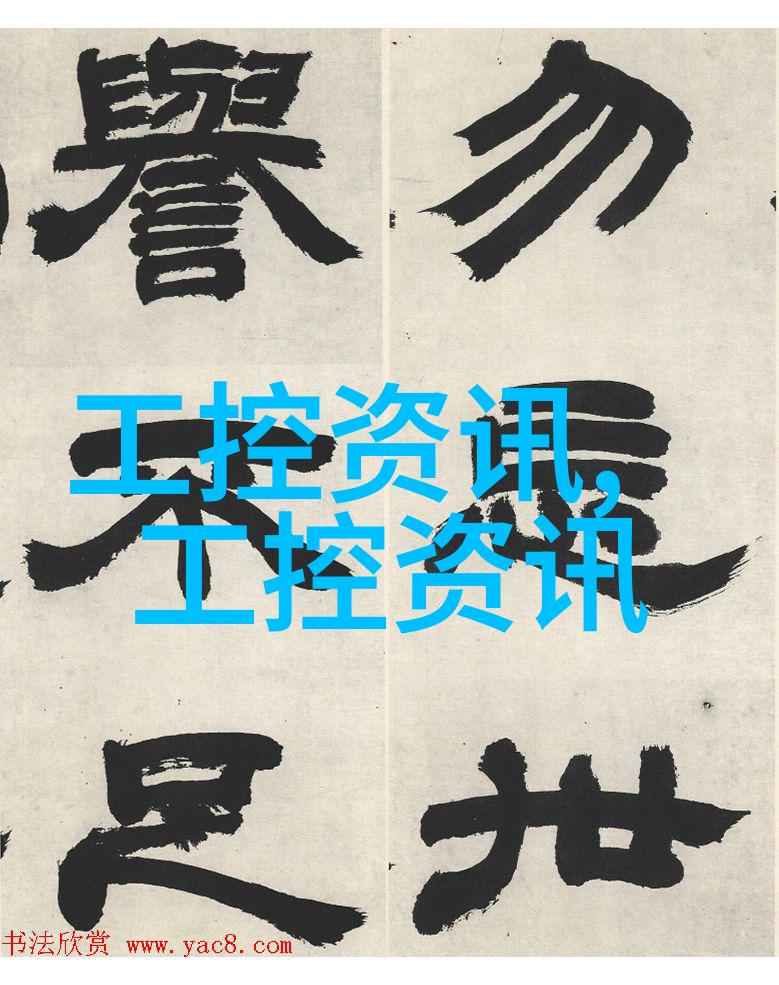 勿忘世
譽不足
工控资讯,
工控资讯
书法欣赏 www.yac8.com